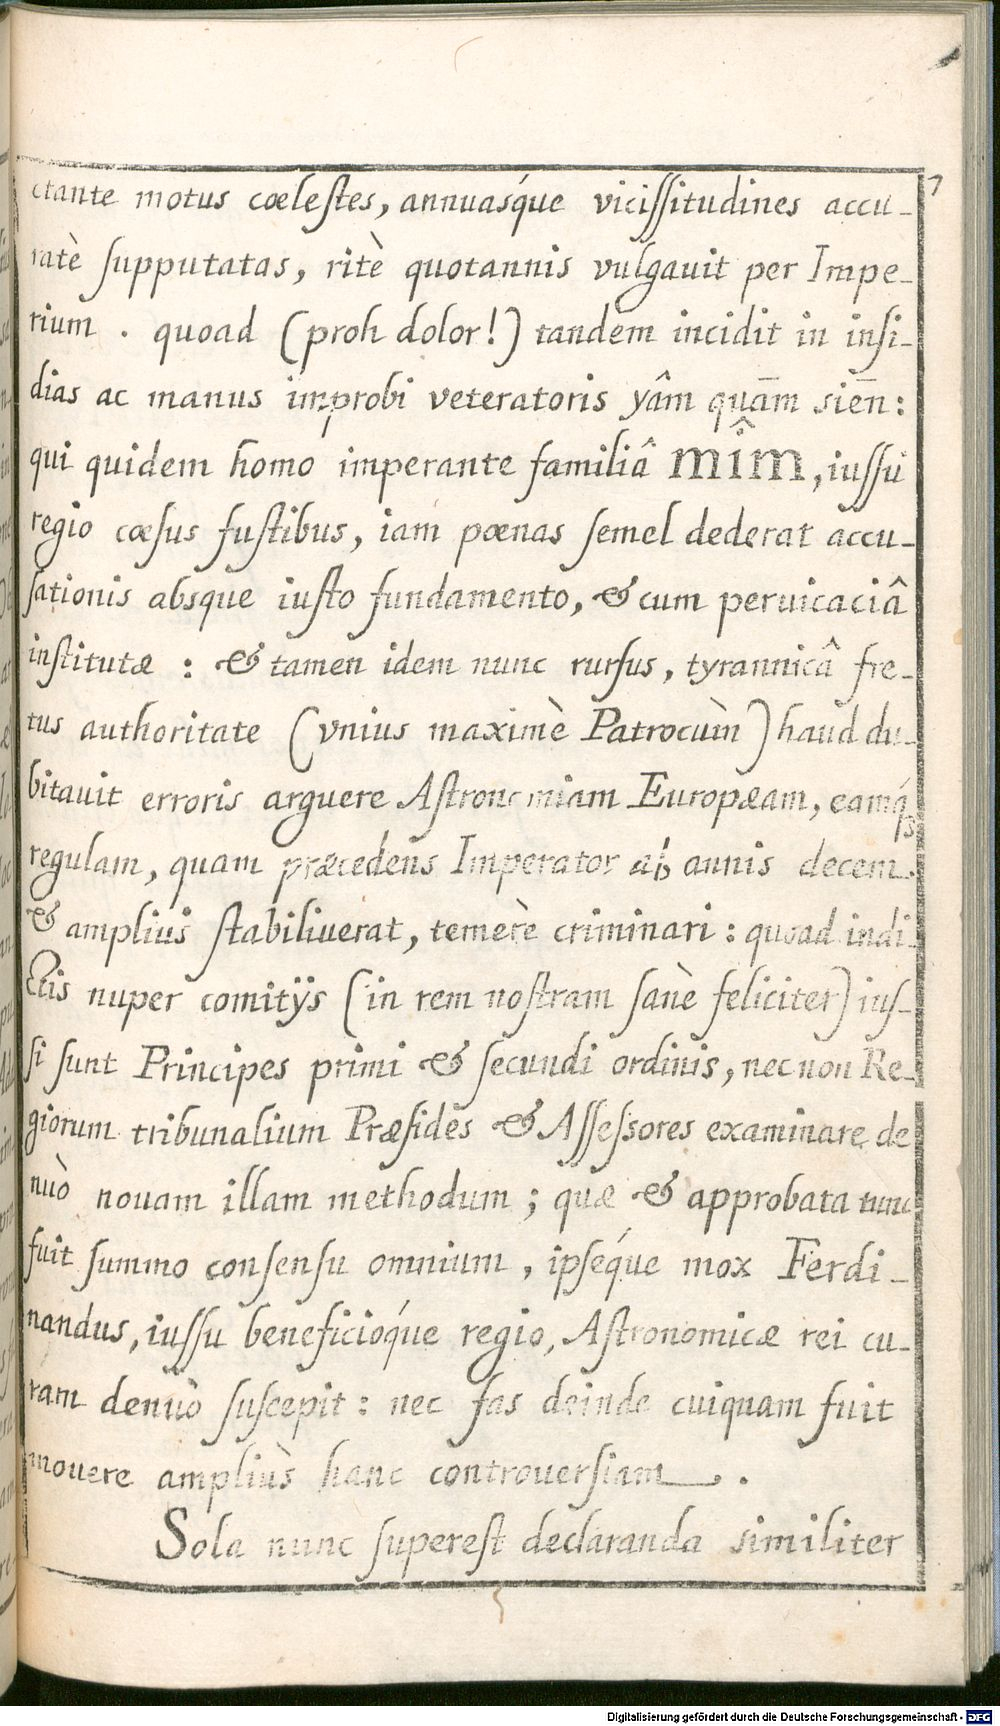 ctante motus cœlestes, annuasq́ue vicissitudines accu-
7
ratè supputatas, ritè quotannis vulgauit per Impe-
rium . quoad (proh dolor!) tandem incidit in insi-
dias ac manus improbi veteratoris yâm quām siēn:
qui quidem homo imperante familiâ mîm, iussu
regio cæsus fustibus, iam pœnas semel dederat accu-
sationis absque iusto fundamento, & cum peruicaciâ
institutæ : & tamen idem nunc rursus, tyrannicâ fre-
tus authoritate (vnius maximè Patrocùm) haud du-
bitauit erroris arguere Astronomiam Europæam, eamq́;
regulam, quam præcedens Imperator ab annis decem
& amplius stabiliuerat, temerè criminari : quoad indi-
ctis nuper comitijs (in rem nostram sanè feliciter) ius-
si sunt Principes primi & secundi ordinis, nec non Re-
giorum tribunalium Præsides & Assessores examinare de
nuò nouam illam methodum ; quæ & approbata tunc
fuit summo consensu omnium, ipseq́ue mox Ferdi-
nandus, iussu beneficioq́ue regio, Astronomicæ rei cu-
ram denuò suscepit : nec fas deinde cuiquam fuit
mouere ampliùs hanc controuersiam .
Sola nunc superest declaranda similiter
Digitalisierung gefördert durch die Deutsche Forschungsgemeinschaft - DFG